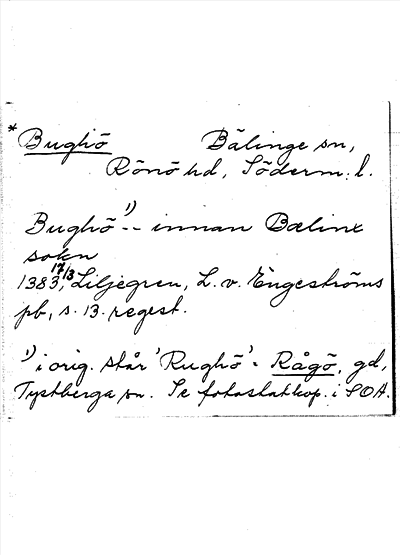 * Bughö Bälinge sn,
Rönö hd, Söderm. l.
Bughö ¹) -- innan Bælinx
sokn
1383 17/3, Liljegren, L. v. Engeströms
pb, s. 13. regest.
¹) i orig. står 'Rughö' = Rågö, gd,
Tystberga sn. Se fotostatkop. i SOA.